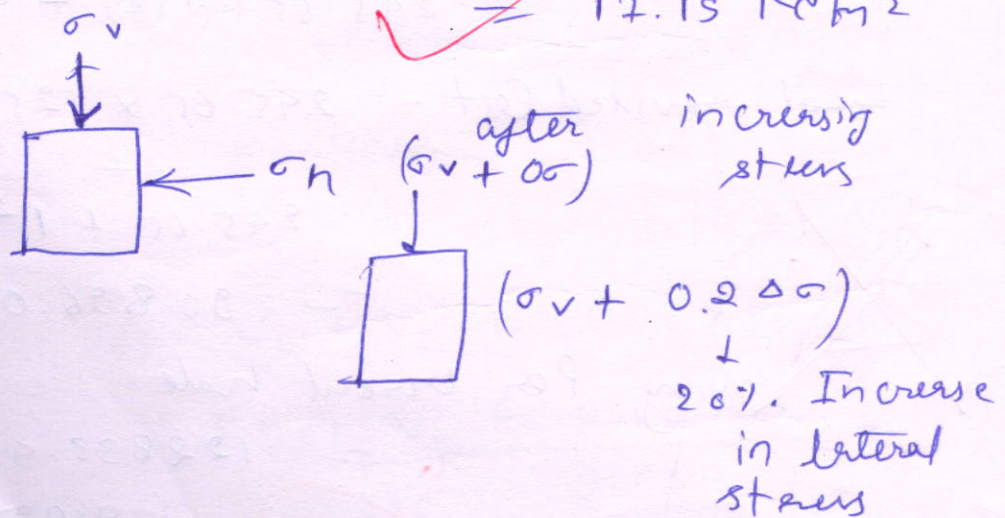 = 17.15 KN/m2
σv
after increasing
σh (σv + Δσ) stress
(σv + 0.2 Δσ)
↓
20%. Increase
in lateral
stress